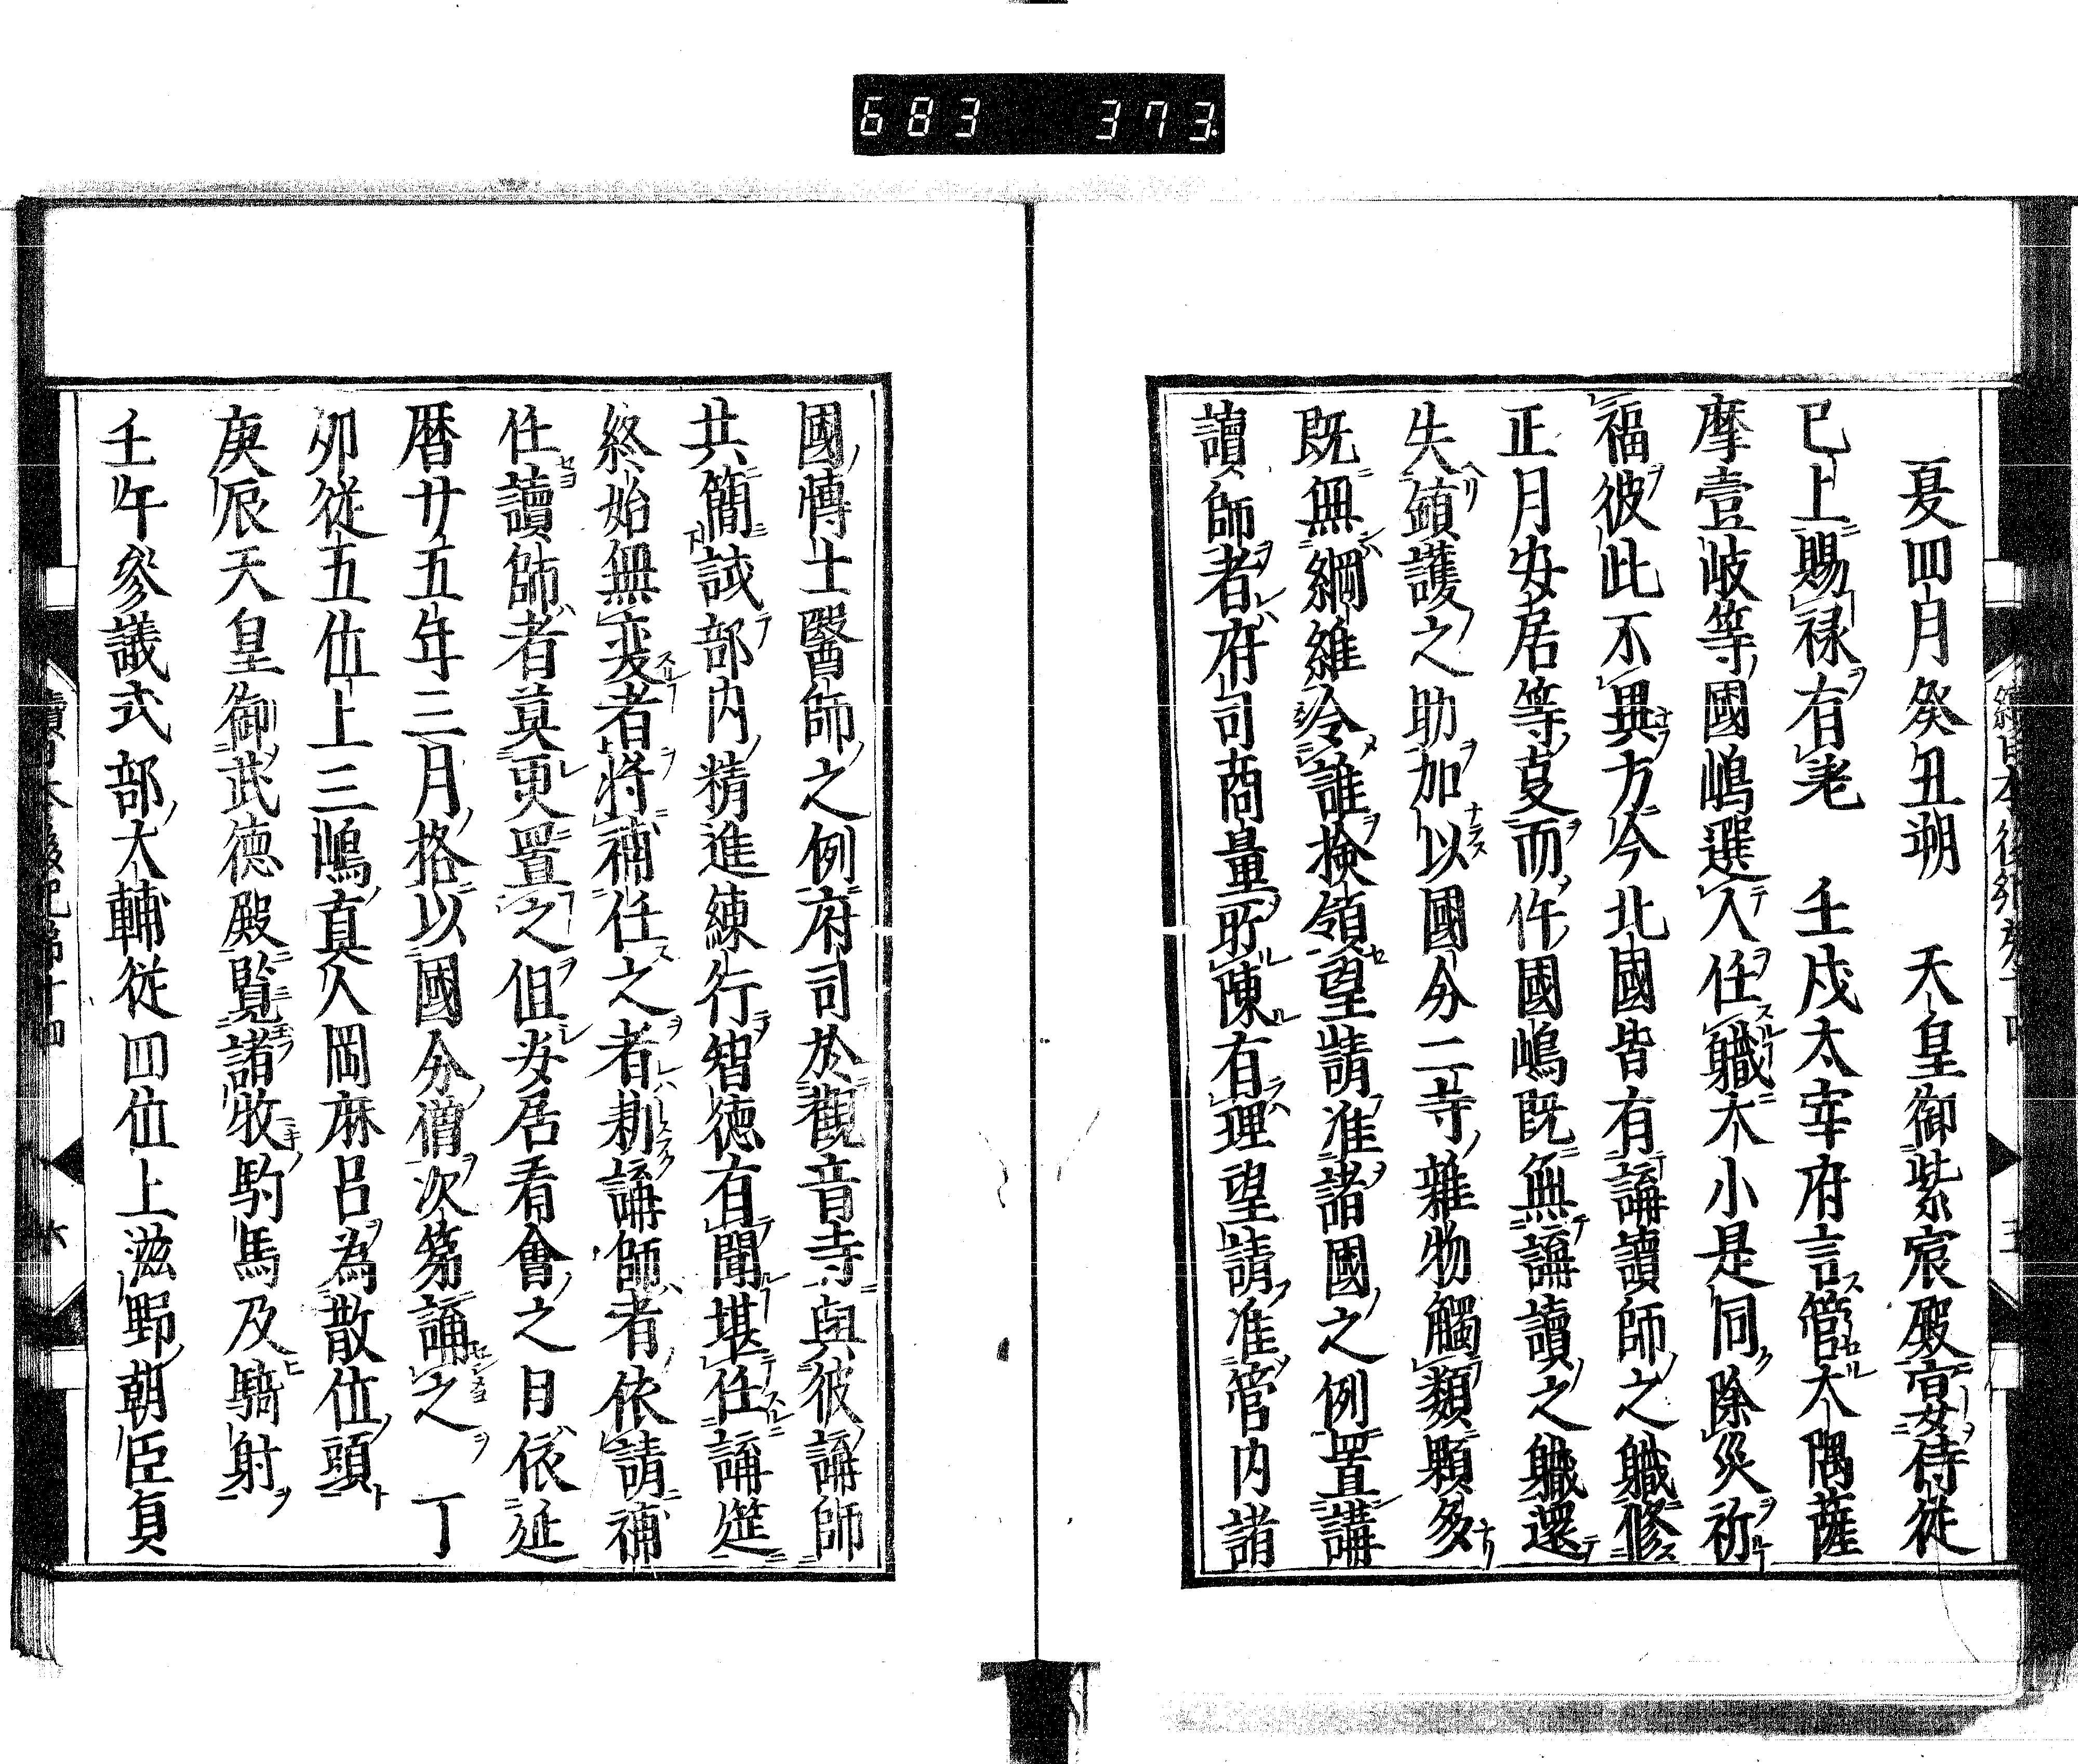 683 373
夏四月癸丑朔 天皇御紫宸殿宴侍從
已上賜祿有差 壬戌太宰府言管大隅薩
摩壹岐等國嶋選人任職大小是同除災祈
福彼此不異方今北國皆有講讀師之職修
正月安居等㕝而件國嶋既無講讀之職還
失鎮護之助加以國分二寺雜物觸類顆多
既無綱維令誰檢領望請准諸國之例置講
讀師者府司商量所陳有理望請准管内諸
國博士醫師之例府司於觀音寺與彼講師
共簡試部内精進練行智徳有聞堪任講筵
終始無變者將補任之者勅講師者依請補
任讀師者莫更置之但安居看會之日依延
暦廿五年三月格以國分僧次第講之 丁
卯從五位上三嶋真人岡麻呂為散位頭
庚辰天皇御武德殿覧諸牧駒馬及騎射
壬午參議式部大輔從四位上滋野朝臣貞